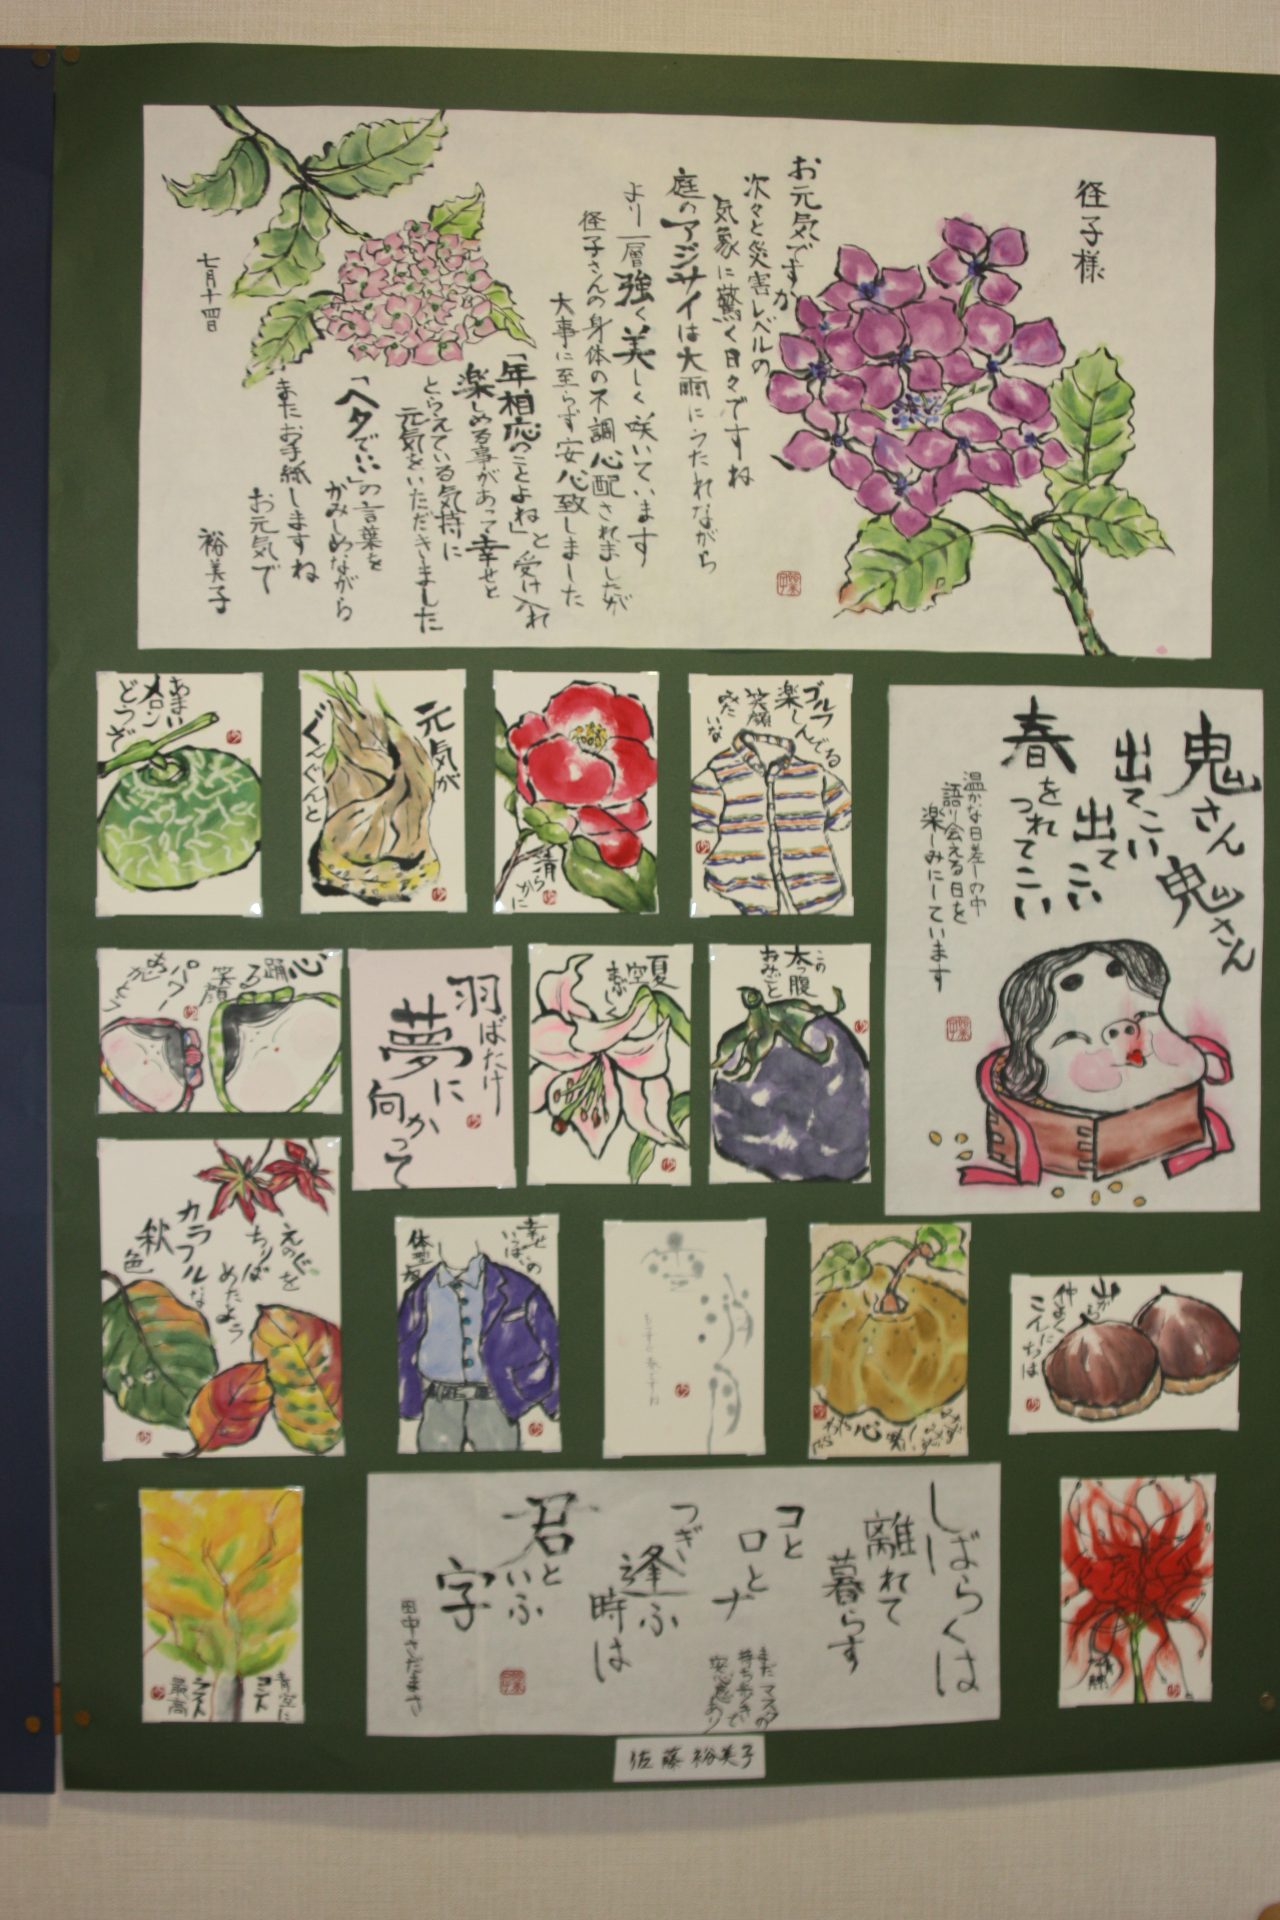 径子様
お元気ですか
次々と災害レベルの
気象に驚く日々ですね
庭のアジサイは大雨にうたれながら
より一層強く美しく咲いています
径子さんの身体の不調心配されましたが
大事に至らず安心致しました
「年相応のことよね」と受け入れ
楽しめる事があって幸せと
とらえている気持に
元気をいただきました
「ヘタでいい」の言葉を
かみしめながら
またお手紙しますね
お元気で
七月十四日
裕美子
あまい
メロン
どうぞ
元気が
ぐんぐんと
清らかに
ゴルフ
楽しんでる
笑顔
みたいな
鬼さん
出てこい
鬼さん
出てこい
春をつれてこい
温かな日差しの中
語り会える日を
楽しみにしています
心
踊る
笑顔
パワー
ありがとう
羽ばたけ
夢に
向かって
夏
空
まぶしく
この
太っ腹
おみごと
えのぐを
ちりば
めたよう
カラフルな
秋
色
幸せの
いっぱいの
体型
心
山から
仲よく
こんにちは
青空に
最高
しばらくは
離れて
暮らす
コと
ロと
ナ
つぎに
逢ふ
時は
君と
いふ
字
田中さだまさ
まだマスクの
持ち歩きで
安心感あり
佐藤裕美子